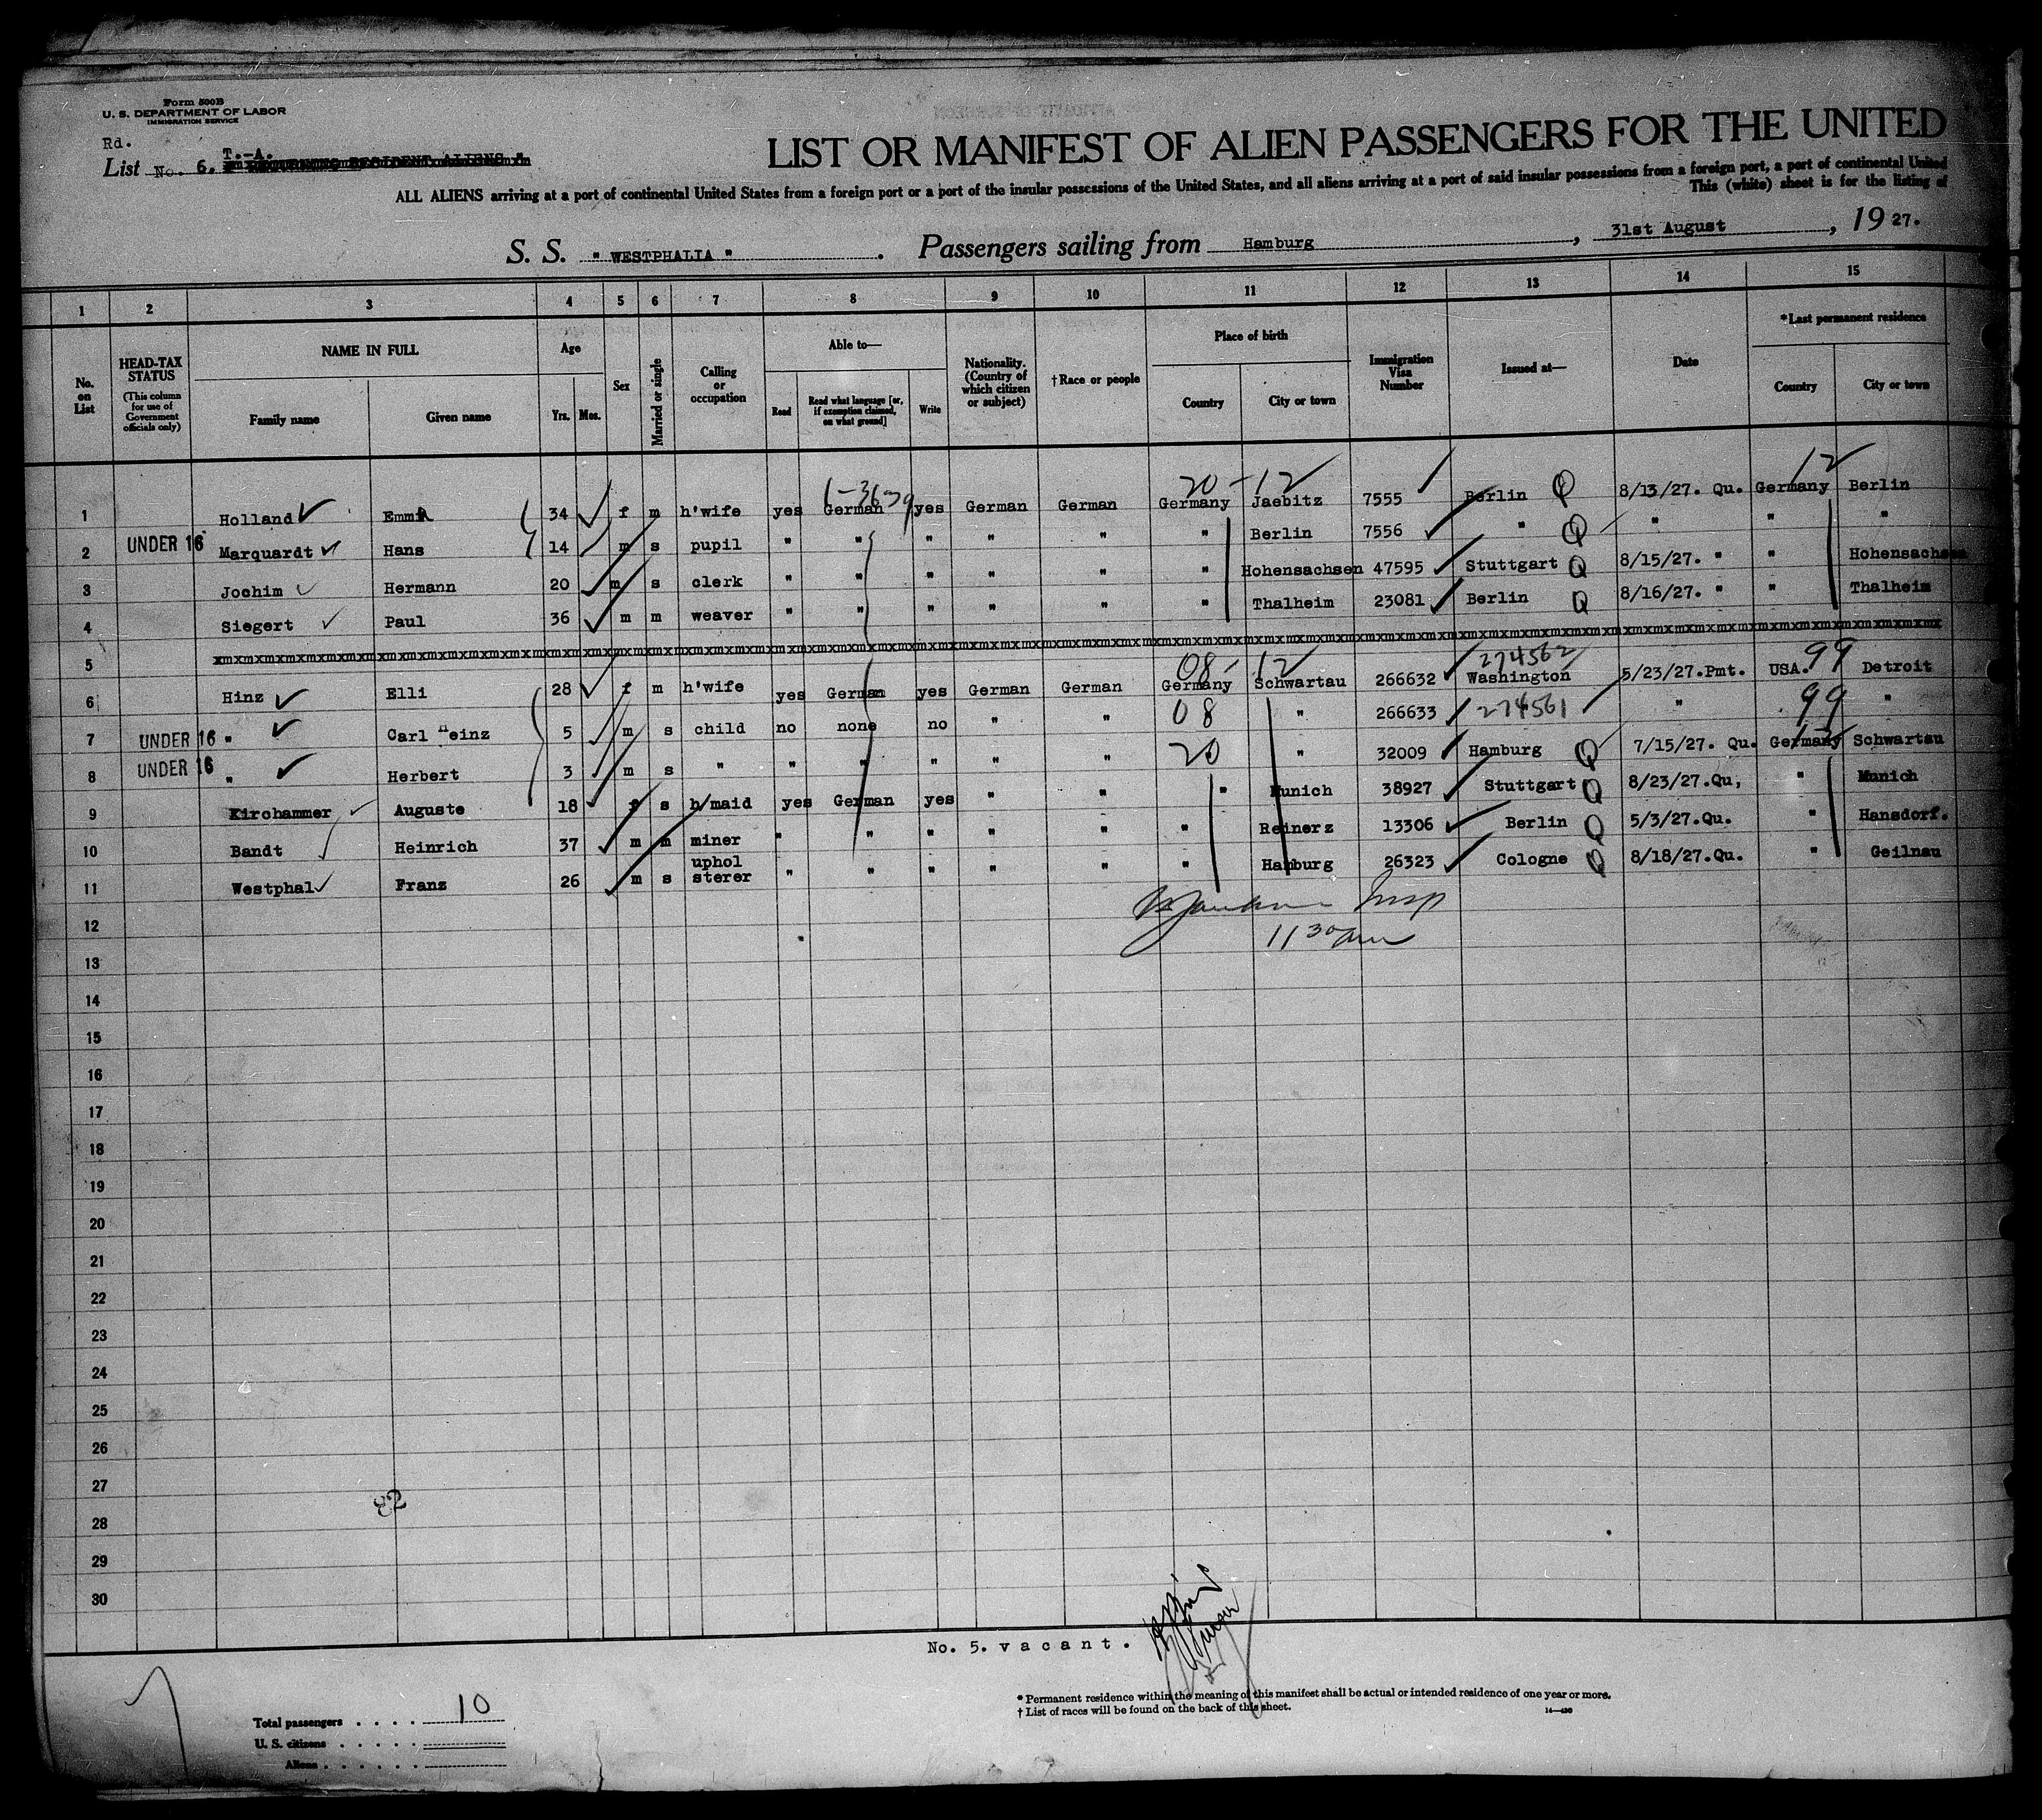 Form 500B
U. S. DEPARTMENT OF LABOR
IMMIGRATION SERVICE
Rd.
T.-A.
List No. 6.
LIST OR MANIFEST OF ALIEN PASSENGERS FOR THE UNITED
ALL ALIENS arriving at a port of continental United States from a foreign port or a port of the insular possessions of the United States, and all aliens arriving at a port of said insular possessions from a foreign port, a port of continental United
This (white) sheet is for the listing of
S. S. " WESTPHALIA " . Passengers sailing from Hamburg , 31st August , 19 27.
1 2 3 4 5 6 7 8 9 10 11 12 13 14 15
No. on List
HEAD-TAX STATUS (This column for use of Government officials only)
NAME IN FULL Family name Given name
Age Yrs. Mos.
Sex
Married or single
Calling or occupation
Able to— Read Read what language [or, if exemption claimed, on what ground] Write
Nationality. (Country of which citizen or subject)
† Race or people
Place of birth Country City or town
Immigration Visa Number
Issued at—
Date
*Last permanent residence Country City or town
20 - 12 12
1 Holland Emma 34 f m h'wife yes German yes German German Germany Jaebitz 7555 Berlin Q 8/13/27. Qu. Germany Berlin
2 UNDER 16 Marquardt Hans 14 m s pupil " " " " " " Berlin 7556 " Q " " "
3 Jochim Hermann 20 m s clerk " " " " " " Hohensachsen 47595 Stuttgart Q 8/15/27. " " Hohensachsen
4 Siegert Paul 36 m m weaver " " " " " " Thalheim 23081 Berlin Q 8/16/27. " " Thalheim
5
08 - 12 274562 99
6 Hinz Elli 28 f m h'wife yes German yes German German Germany Schwartau 266632 Washington 5/23/27.Pmt. USA. Detroit
7 UNDER 16 " Carl Heinz 5 m s child no none no " " 08 " 266633 274561 " 99 "
8 UNDER 16 " Herbert 3 m s " " " " " " 20 " 32009 Hamburg Q 7/15/27. Qu. Germany Schwartau
9 Kirchammer Auguste 18 f s h/maid yes German yes " " " Munich 38927 Stuttgart Q 8/23/27.Qu, " Munich
10 Bandt Heinrich 37 m m miner " " " " " " Reinerz 13306 Berlin Q 5/3/27.Qu. " Hansdorf.
11 Westphal Franz 26 m s uphol sterer " " " " " " Hamburg 26323 Cologne Q 8/18/27.Qu. " Geilnau
12
Insp
11 30 am
13
14
15
16
17
18
19
20
21
22
23
24
25
26
27
28
29
30
No. 5. v a c a n t .
* Permanent residence within the meaning of this manifest shall be actual or intended residence of one year or more.
† List of races will be found on the back of this sheet.
Total passengers . . . . 10
U. S. citizens . . . . .
Aliens . . . . . .